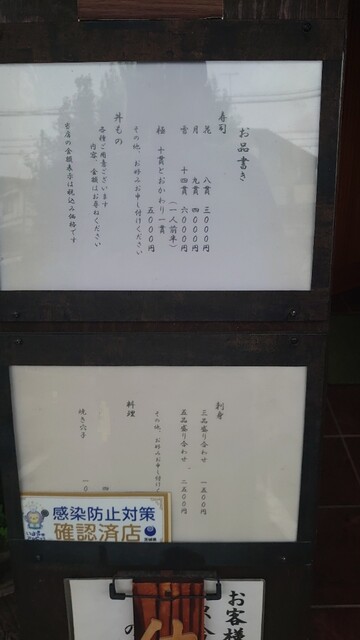 お品書き
寿司
花 八貫 三〇〇〇円
月 九貫 四〇〇〇円
雪 十四貫 六〇〇〇円
(一人前半)
極 十貫とおかわり一貫
五〇〇〇円
その他、お好みお申し付けください
丼もの
各種ご用意ございます
内容、金額はお尋ねください
当店の金額表示は税込み価格です
刺身
三品盛り合わせ 一五〇〇円
五品盛り合わせ 二五〇〇円
その他、お好みお申し付け
料理
焼き穴子
感染防止対策
確認済店
お客様